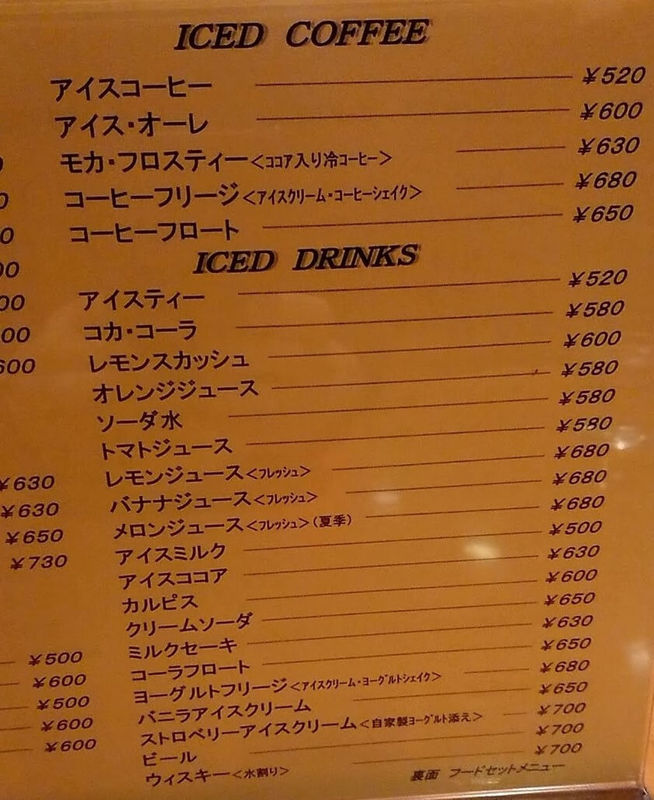 ICED COFFEE
アイスコーヒー ¥520
アイス・オーレ ¥600
モカ・フロスティー<ココア入り冷コーヒー> ¥630
コーヒーフリージ<アイスクリーム・コーヒーシェイク> ¥680
コーヒーフロート ¥650
ICED DRINKS
アイスティー ¥520
コカ・コーラ ¥580
レモンスカッシュ ¥600
オレンジジュース ¥580
ソーダ水 ¥580
トマトジュース ¥580
レモンジュース<フレッシュ> ¥680
バナナジュース<フレッシュ> ¥680
メロンジュース<フレッシュ>(夏季) ¥680
アイスミルク ¥500
アイスココア ¥630
カルピス ¥600
クリームソーダ ¥650
ミルクセーキ ¥630
コーラフロート ¥650
ヨーグルトフリージ<アイスクリーム・ヨーグルトシェイク> ¥680
バニラアイスクリーム ¥650
ストロベリーアイスクリーム<自家製ヨーグルト添え> ¥700
ビール ¥700
ウィスキー<水割り> ¥700
裏面 フードセットメニュー
¥630
¥630
¥650
¥730
¥500
¥600
¥500
¥600
¥600